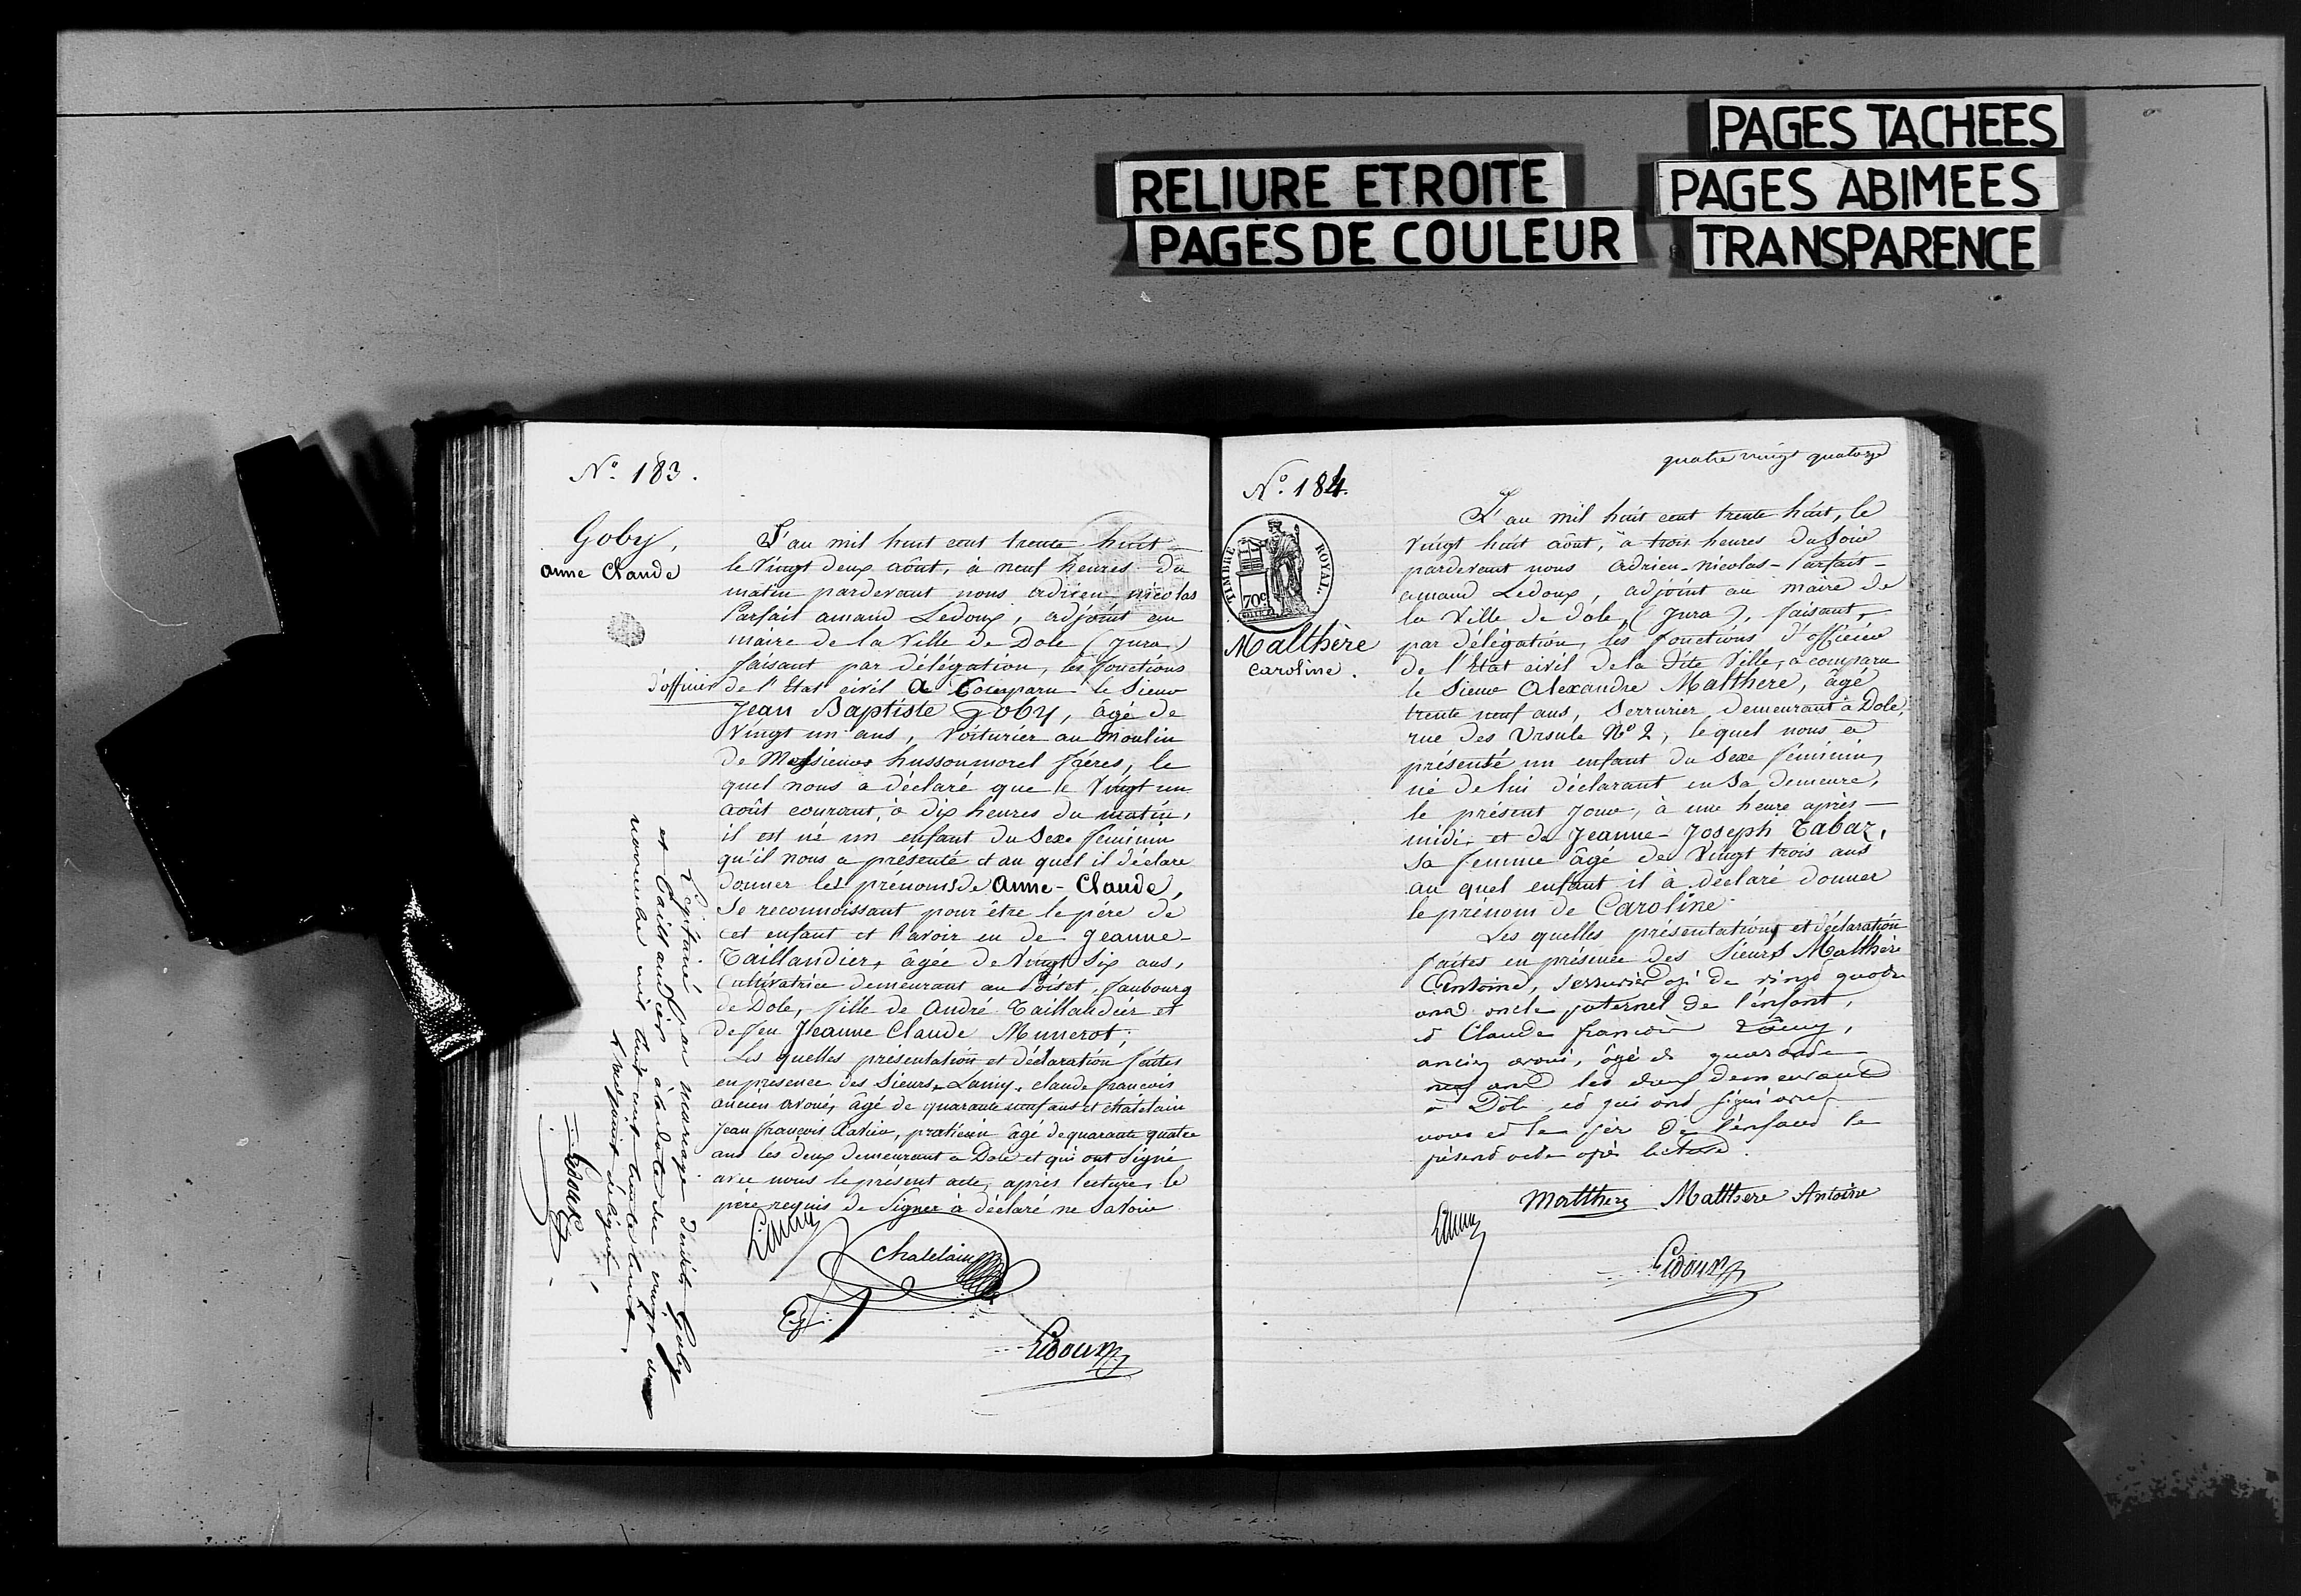 PAGES TACHEES
RELIURE ETROITE
PAGES ABIMEES
PAGES DE COULEUR
TRANSPARENCE
N° 183.
Goby,
anne Claude
L'an mil huit cent trente huit
le Vingt deux août, à neuf heures du
matin pardevant nous adrien nicolas
Parfait amand Ledoux, adjoint au
maire de la Ville de Dole (Jura)
faisant par délégation, les fonctions
d'officier de l'Etat civil a Comparu le Sieur
Jean Baptiste Goby, âgé de
Vingt un ans, Voiturier au Moulin
de Messieurs hussonmorel frères, le
quel nous a déclaré que le Vingt un
août courant, à dix heures du matin,
il est né un enfant du Sexe féminin
qu'il nous a présenté et au quel il déclare
donner les prénoms de Anne-Claude,
Se reconnoissant pour être le père de
cet enfant et l'avoir eu de Jeanne-
Taillandier, âgée de Vingt Six ans,
Cultivatrice demeurant au Poiset, faubourg
de Dole, fille de André Taillandier et
de feu Jeanne Claude Munerot;
Les quelles présentation et déclaration faites
en présence des Sieurs Lamy, claude françois
ancien avoué, âgé de quarante neuf ans et chatelain
Jean françois Xavier, praticien âgé de quarante quatre
ans les deux demeurant à Dole et qui ont Signé
avec nous le présent acte, après lecture, le
père requis de Signer à déclaré ne Savoir
Lamy
Chatelain
Ledoux
Légitimé par mariage desdits Goby
et Taillandier à la date du vingt deux
novembre mil huit cent trente huit,
Ledoux
quatre vingt quatorze
N° 184.
TIMBRE ROYAL.
70c
Malthère
Caroline.
L'an mil huit cent trente huit, le
Vingt huit août, à trois heures du Soir
pardevant nous Adrien-nicolas-Parfait-
amand Ledoux, adjoint au maire de
la Ville de Dole, (Jura), faisant,
par délégation, les fonctions d'officier
de l'Etat civil de la dite Ville, a comparu
le Sieur Alexandre Malthere, âgé
trente neuf ans, Serrurier demeurant à Dole,
rue des Ursule N° 2, lequel nous a
présenté un enfant du Sexe féminin,
né de lui déclarant en Sa demeure,
le présent Jour, à une heure après-
midi, et de Jeanne-Joseph Tabaz,
Sa femme âgé de Vingt trois ans
au quel enfant il à déclaré donner
le prénom de Caroline
Les quelles présentations et déclaration
faites en présence des Sieurs Malthère
Antoine, Serrurier âgé de vingt quatre
ans oncle paternel de l'enfant,
et Claude françois Lamy,
ancien avoué, âgé de quarante
neuf ans les deux demeurant
à Dole et qui ont signé avec
nous et le père de l'enfant le
présent acte après lecture.
Malthere Malthere Antoine
Lamy
Ledoux